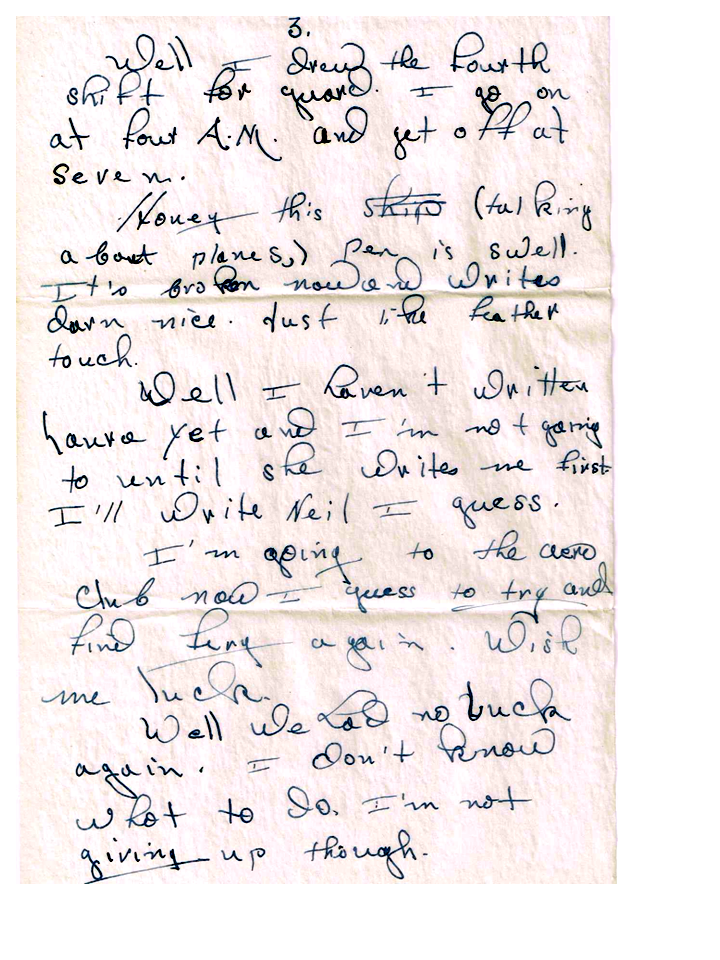 3.
Well I drew the fourth
shift for guard. I go on
at four A.M. and get off at
seven.
Honey this ship (talking
about planes,) Pen is swell.
It's broken now and writes
darn nice. Just like feather
touch.
Well I haven't written
Laura yet and I'm not going
to until she writes me first
I'll write Neil I guess.
I'm going to the aero
club now I guess to try and
find again. Wish
me luck.
Well we had no luck
again. I don't know
what to do. I'm not
giving up though.